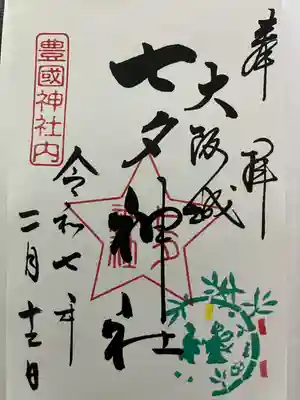 奉拝
大阪城
七夕神社
豊國神社内
令和七年
二月十二日